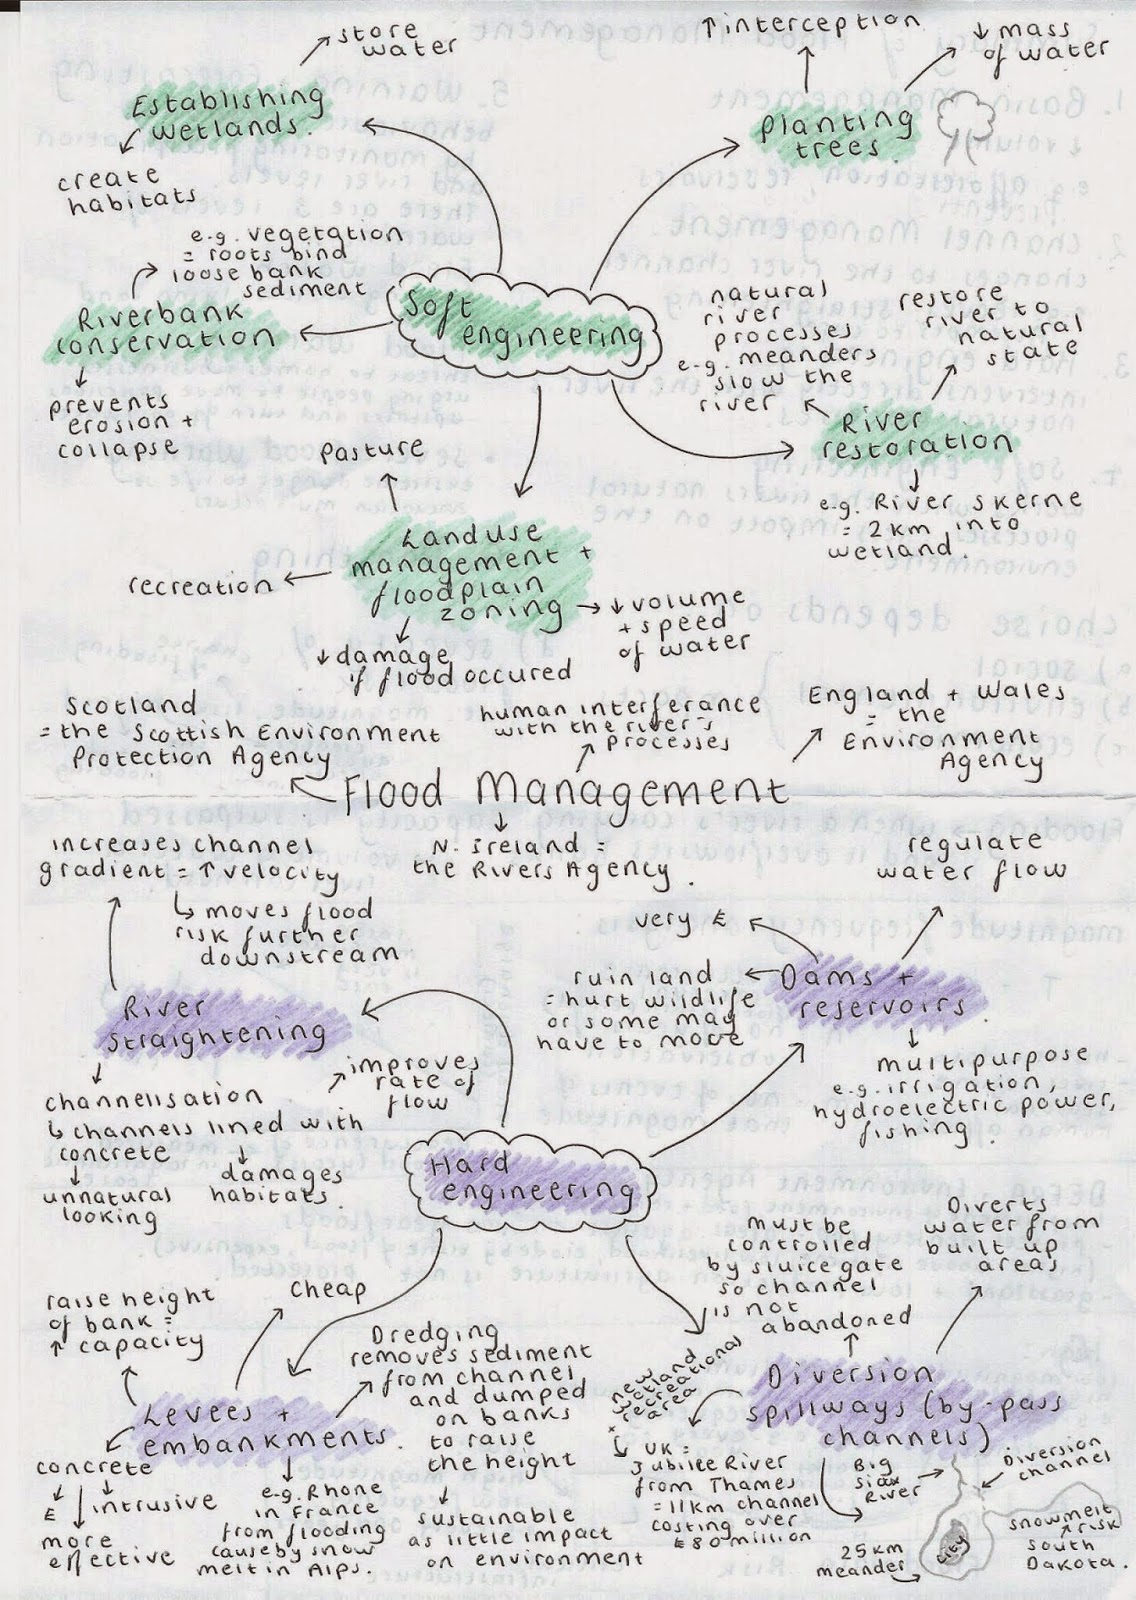 store
water
Establishing
wetlands.
create
habitats
↑ interception
↓ mass
of water
Planting
trees.
e.g. vegetation
= roots bind
loose bank
sediment
Riverbank
conservation
prevents
erosion +
collapse
Soft
engineering
natural
river
processes
e.g. meanders
slow the
river
restore
river to
natural
state
River
restoration
e.g. River Skerne
= 2km into
wetland.
Pasture
Landuse
management +
floodplain
zoning
recreation
↓ volume
+ speed
of water
↓ damage
if flood occured
Scotland
= the Scottish Environment
Protection Agency
human interferance
with the river's
processes
England + Wales
= the
Environment
Agency
Flood Management
N. Ireland =
the Rivers Agency.
increases channel
gradient = ↑ velocity
↳ moves flood
risk further
downstream
River
straightening
channelisation
↳ channels lined with
concrete
unnatural
looking
damages
habitats.
improves
rate of
flow
regulate
water flow
very £
ruin land
= hurt wildlife
or some may
have to move
Dams +
reservoirs.
multipurpose
e.g. irrigation,
hydroelectric power,
fishing.
Hard
engineering
raise height
of bank =
↑ capacity
Cheap
Levees +
embankments.
concrete
£
intrusive
more
effective
e.g. Rhone
in France
from flooding
cause by snow
melt in Alps.
Dredging
removes sediment
from channel
and dumped
on banks
to raise
the height
sustainable
as little impact
on environment
must be
controlled
by sluice gate
so channel
is not
abandoned
Diverts
water from
built up
areas
Diversion
spillways (by-pass
channels)
new
wetland
recreational
area
+
UK =
Jubilee River
from Thames
= 11km channel
costing over
£80 million
Big
Sioux
River
Diversion
channel
city
25km
meander
snowmelt
↑ risk
South
Dakota.